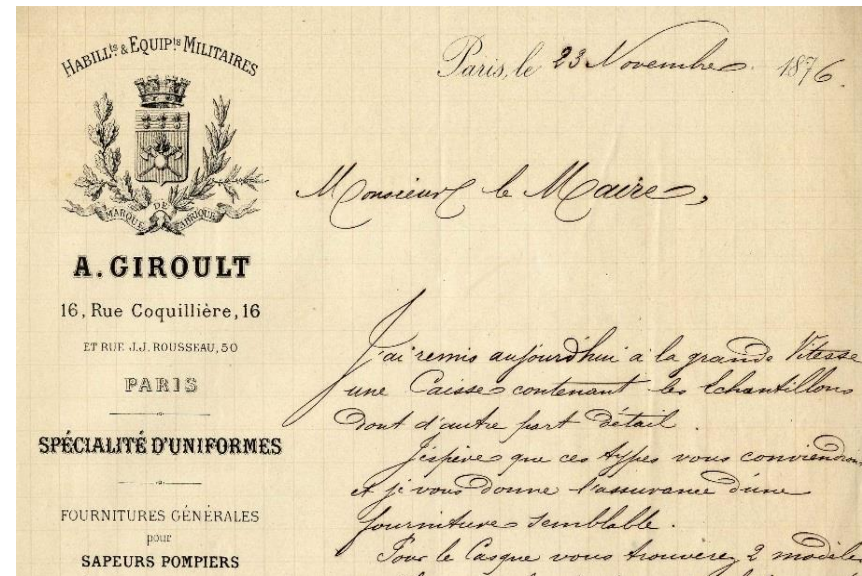 HABILL.ts & EQUIP.ts MILITAIRES
MARQUE DE FABRIQUE
A. GIROULT
16, Rue Coquillière, 16
ET RUE J.J. ROUSSEAU, 50
PARIS
SPÉCIALITÉ D'UNIFORMES
FOURNITURES GÉNÉRALES
pour
SAPEURS POMPIERS
Paris, le 23 Novembre 1876.
Monsieur le Maire,
J'ai remis aujourd'hui à la grande Vitesse
une Caisse contenant les Echantillons
dont d'autre part détail.
J'espère que ces types vous conviendron
et je vous donne l'assurance d'une
fourniture semblable.
Pour le Casque vous trouverez 2 modèle